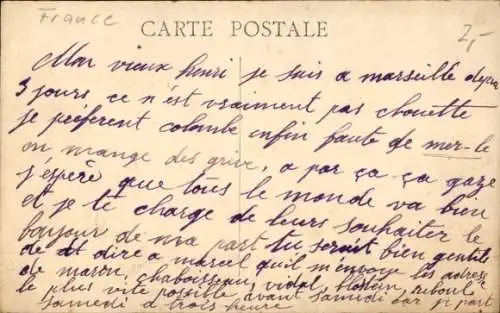 France
2,-
CARTE POSTALE
Mon vieux henri je suis a marseille depuis
3 jours ce n'est vraiment pas chouette
je préferent colombe enfin faute de mer-le
on mange des grive, a par ça ça gaze
j'espère que tous le monde va bien
et je te charge de leurs souhaiter le
bonjour de ma part tu serait bien gentil
de dire a marcel qu'il m'envoye les adresse
de mason, chaboisseau, vidal, reboul
le plus vite possible avant samedi car je part
samedi a trois heure